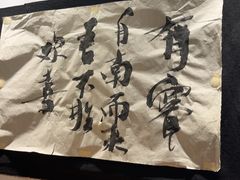 有賓
自南而来
吾不胜
欢喜